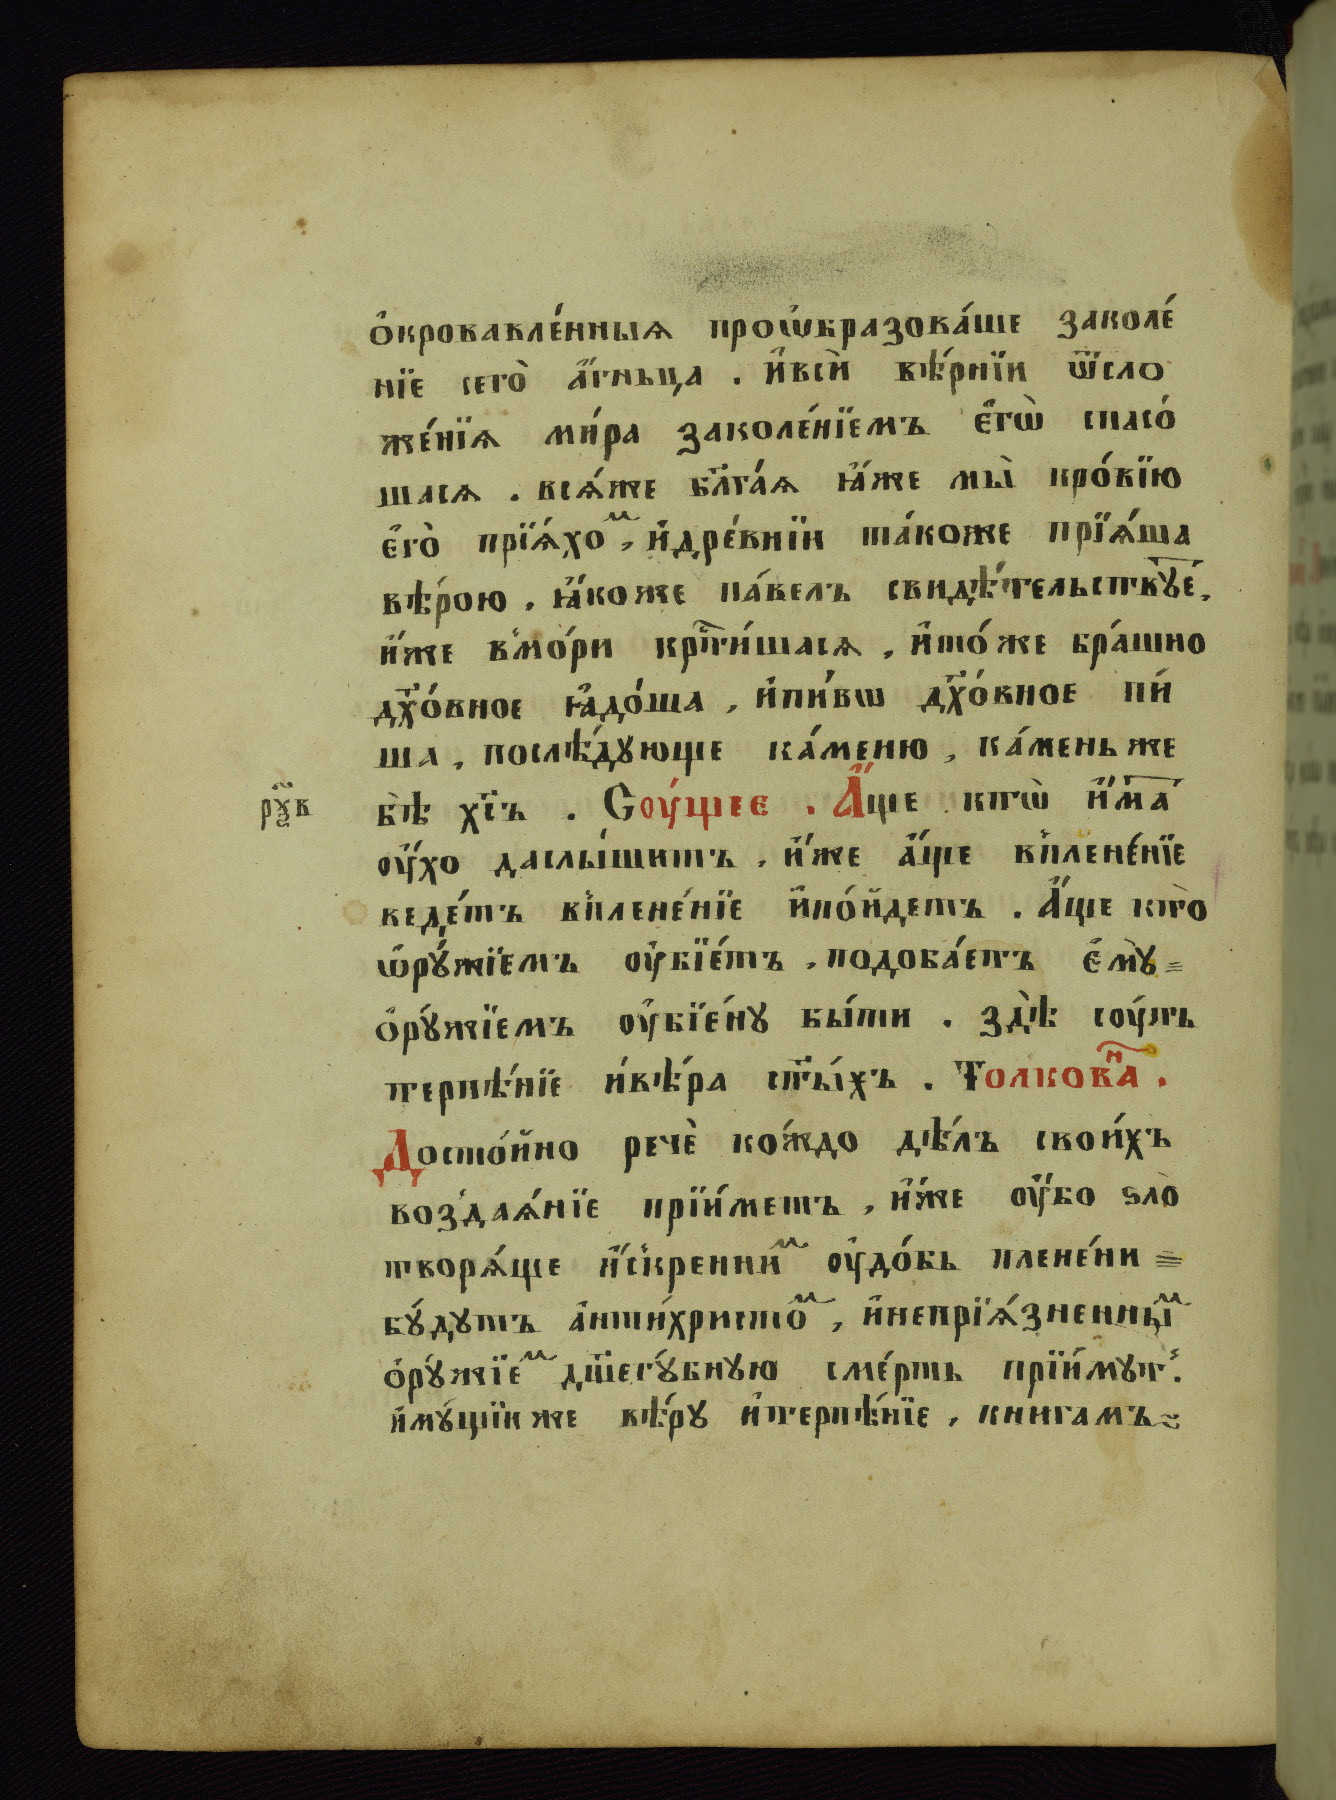 ѻ҆крова́вле́нныѧ проѡ҆бразова́ше заколе́
нїе сего̀ а҆́гньца . и҆всѝ вѣ́рнїи ѿсло
же́нїѧ ми́ра заколе́нїемъ є҆гѡ̀ спасо́
шасѧ . всѧ́же бл҃га́ѧ ꙗ҆́же мы̀ кро́вїю
є҆го̀ прїѧ́хоⷨ , и҆дре́внїи та́коже прїѧ́ша
вѣ́рою , ꙗ҆́коже па́велъ свидѣ́тельствꙋе҃ .
и҆́же в̾мо́ри кр҃ти́шасѧ , и҆то́же бра́шно
дх҃о́вное ꙗ҆до́ша , и҆пи́вѡ дх҃о́вное пи́
ша , послѣ́дующе ка́меню , ка́меньже
рꙋ҃в бѣ̀ хс҃ъ . Соу́щее . А҆́ще ктѡ̀ и҆́ма҃
оу҆́хо даслы́шитъ , и҆́же а҆́ще в̾плене́нїе
веде́тъ в̾плене́нїе и҆по́йдетъ . А҆́ще кто̀
ѡ҆рꙋ́жїемъ оу҆бїе́тъ , подоба́етъ є҆мꙋ̀ =
ѻ҆рꙋ́жїемъ оу҆бїе́нꙋ бы́ти . здѣ̀ соу́ть
терпѣ́нїе и҆вѣ́ра ст҃ы́хъ . Толковⷩ҇а .
Досто́йно речѐ ко́ждо дѣ́лъ свои́хъ
воз̾даѧ́нїе прїи́метъ , и҆́же оу҆́бо ѕло̀
творѧ́ще и҆́с̾креннїиⷨ оу҆до́бь плене́ни =
бꙋ́дꙋтъ а҆нти́христоⷨ , и҆непрїѧ́зненныⷨ
ѻ҆рꙋ́жїеⷨ дш҃егꙋ́бнꙋю сме́рть прїи́мꙋт̾ .
и҆мꙋ́щїиже вѣ́рꙋ и҆терпѣ́нїе , книгамъ ~